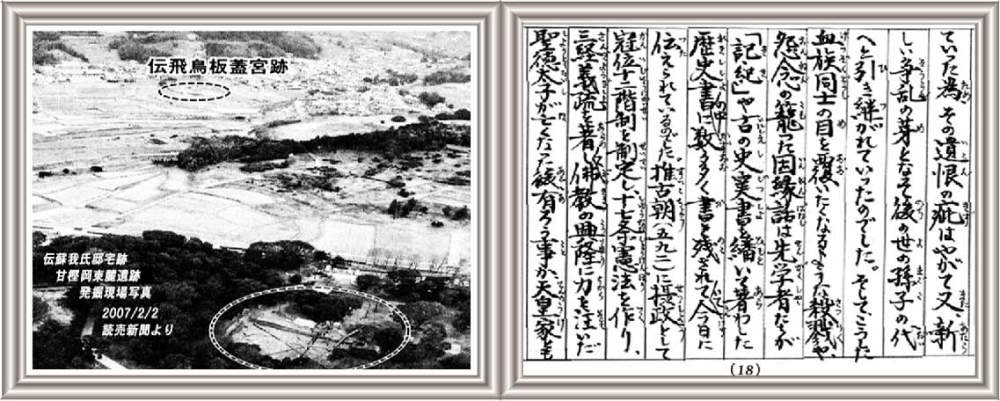 伝飛鳥板蓋宮跡
伝蘇我氏邸宅跡
甘樫岡東麓遺跡
発掘現場写真
2007/2/2
読売新聞より
ていった為、その遺恨の疵はやがて又、新
しい争乱の芽となって後の世の孫子の代
へと引き継がれていったのでした。そしてこうした
血族同士の目を覆いたくなるような殺戮や
怨念の籠った因縁話は先学者たちが
「記紀」や古の史実書を繙いて著わした
歴史書の中に数多く書き残されて今日に
伝えられているのでした。推古朝(五九二)に摂政として
冠位十二階制を制定し、十七条憲法を作り、
三経義疏を著し、佛教の興隆に力を注いだ
聖徳太子が亡くなった後、有ろう事か、天皇家とも
(18)